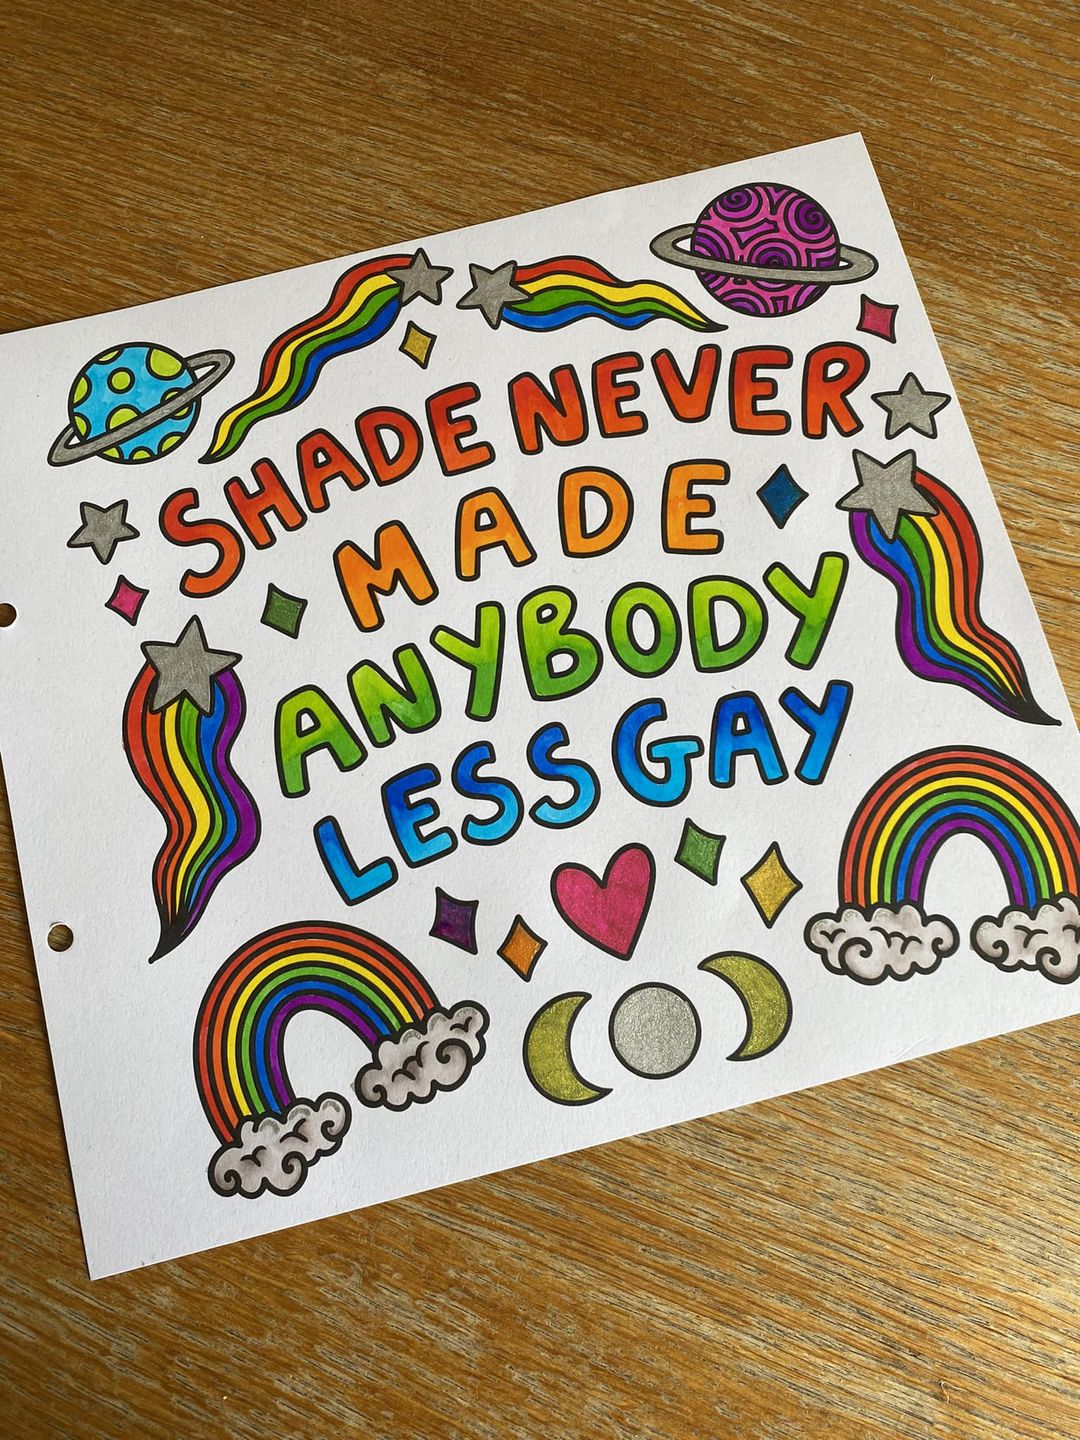 SHADE NEVER
MADE
ANYBODY
LESS GAY